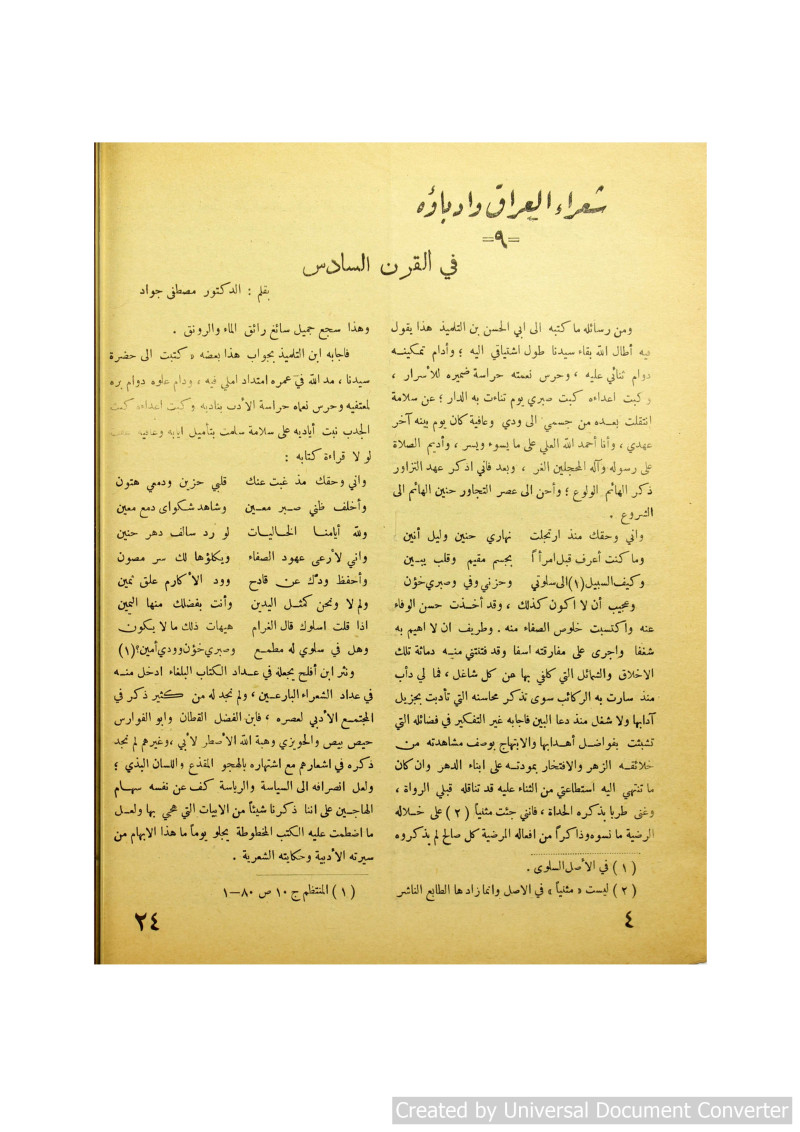 شعراء العراق وادباؤه
=٩=
في القرن السادس
بقلم : الدكتور مصطفى جواد
ومن رسائله ما كتبه الى ابي الحسن بن التلميذ هذا يقول
فيه أطال الله بقاء سيدنا طول اشتياقي اليه ؛ وأدام تمكينه
دوام ثنائي عليه ، وحرس نعمته حراسة ضميره للأسرار ،
وكبت اعداءه كبت صبري يوم تناءت به الدار ؛ عن سلامة
انتقلت بعده من جسمي الى ودي وعافية كان يوم بينه آخر
عهدي ، وأنا أحمد الله العلي على ما يسوء ويسر ، وأديم الصلاة
على رسوله وآله المحجلين الغر ، وبعد فاني اذكر عهد التزاور
ذكر الهائم الولوع ؛ وأحن الى عصر التجاور حنين الهائم الى
الشروع .
واني وحقك منذ ارتحلت نهاري حنين وليل أنين
وما كنت أعرف قبل امرأً بجسم مقيم وقلب يبين
وكيف السبيل (١) الى سلوتي وحزني وفي وصبري خؤن
وعجيب أن لا اكون كذلك ، وقد أخذت حسن الوفاء
عنه واكتسبت خلوص الصفاء منه . وطريف ان لا اهيم به
شغفا واجرى على مفارقته اسفا وقد فتنتني منه دماثة تلك
الاخلاق والشمائل التي كلفي بها عن كل شاغل ، فما لي دأب
منذ سارت به الركائب سوى تذكر محاسنه التي تأدبت بجزيل
آدابها ولا شغل منذ دعا البين فاجابه غير التفكير في فضائله التي
تشبثت بفواضل أهدابها والابتهاج بوصف مشاهدته من
خلائقه الزهر والافتخار بمودته على ابناء الدهر وان كان
ما تنتهي اليه استطاعتي من الثناء عليه قد تناقله قبلي الرواة ،
وغنى طربا بذكره الحداة ، فانني جئت مثنياً (٢) على خلاله
الرضية ما نسوه وذاكراً من افعاله المرضية كل صالح لم يذكروه
(١) في الأصل السلوى .
(٢) ليست « مثنياً » في الاصل وانما زادها الطابع الناشر
٤
وهذا سجع جميل سائغ رائق الماء والرونق .
فاجابه ابن التلميذ بجواب هذا بعضه « كتبت الى حضرة
سيدنا ، مد الله في عمره امتداد املي فيه ، ودام علوه دوام بره
لمعتفيه وحرس نعماه حراسة الأدب بناديه وكبت اعداءه كبت
الجدب نبت أياديه على سلامة سلمت بتأميل ايابه وعافية
لو لا قراءة كتابه :
واني وحقك مذ غبت عنك قلبي حزين ودمعي هتون
وأخلف ظني صبر معين وشاهد شكواي دمع معين
ولله أيامنا الخاليات لو رد سالف دهر حنين
واني لأرعى عهود الصفاء ويكلؤها لك سر مصون
وأحفظ ودّك عن قادح وود الأكارم علق ثمين
ولم لا ونحن كمثل اليدين وأنت بفضلك منها اليمين
اذا قلت اسلوك قال الغرام هيهات ذلك ما لا يكون
وهل في سلوي له مطمع وصبري خؤن وودي أمين؟ (١)
ونثر ابن أفلح يجعله في عداد الكتاب البلغاء ادخل منه
في عداد الشعراء البارعين ، ولم نجد له من كثير ذكر في
المجتمع الأدبي لعصره ، فابن الفضل القطان وابو الفوارس
حيص بيص والحويزي وهبة الله الأصطر لأبي ، وغيرهم لم نجد
ذكره في اشعارهم مع اشتهاره بالهجو المقذع واللسان البذي ؛
ولعل انصرافه الى السياسة والرياسة كف عن نفسه سهام
الهاجين على اننا ذكرنا شيئاً من الابيات التي هجي بها ولعل
ما اضطمت عليه الكتب المخطوطة يجلو يوماً ما هذا الابهام من
سيرته الأدبية وحكايته الشعرية .
(١) المنتظم ج ١٠ ص ٨٠—١
٢٤
Created by Universal Document Converter